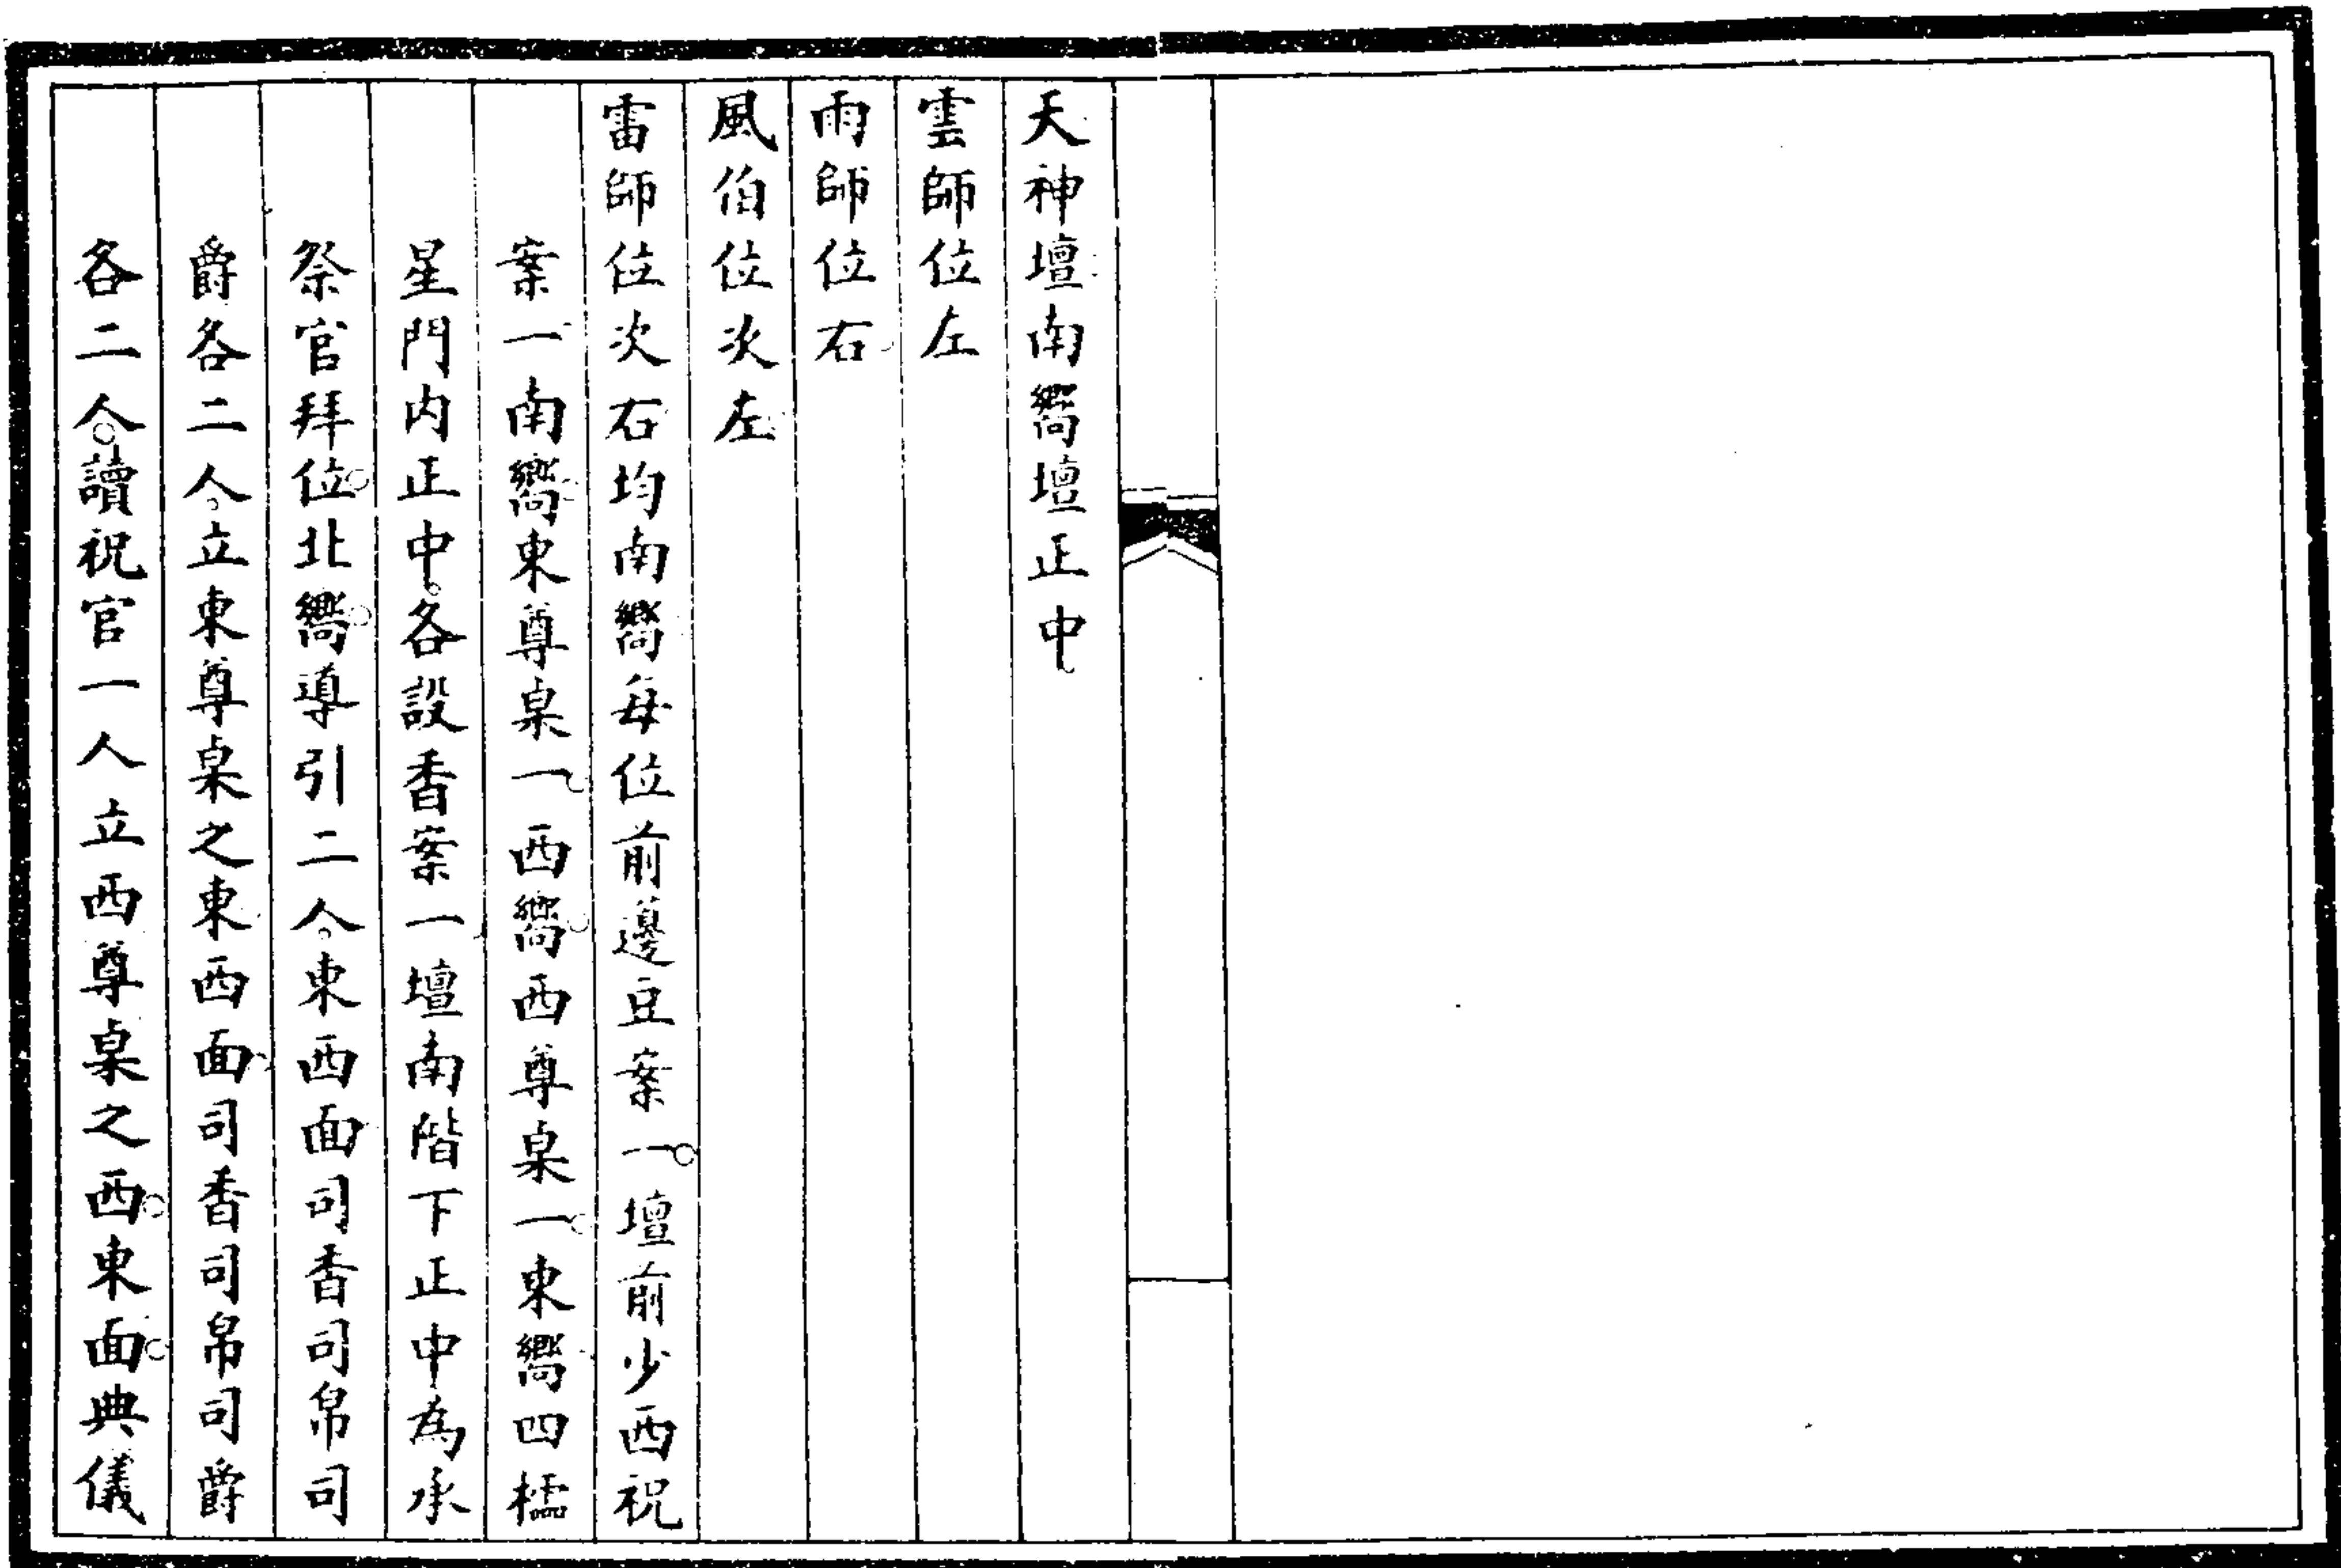 天神壇南嚮壇正中
雲師位左
雨師位右
風伯位次左
雷師位次右均南嚮每位前籩豆案一壇前少西祝
案一南嚮東尊桌一西嚮西尊桌一東嚮四櫺
星門内正中各設香案一壇南階下正中為承
祭官拜位北嚮導引二人東西面司香司帛司
爵各二人立東尊桌之東西面司香司帛司爵
各二人讀祝官一人立西尊桌之西東面典儀